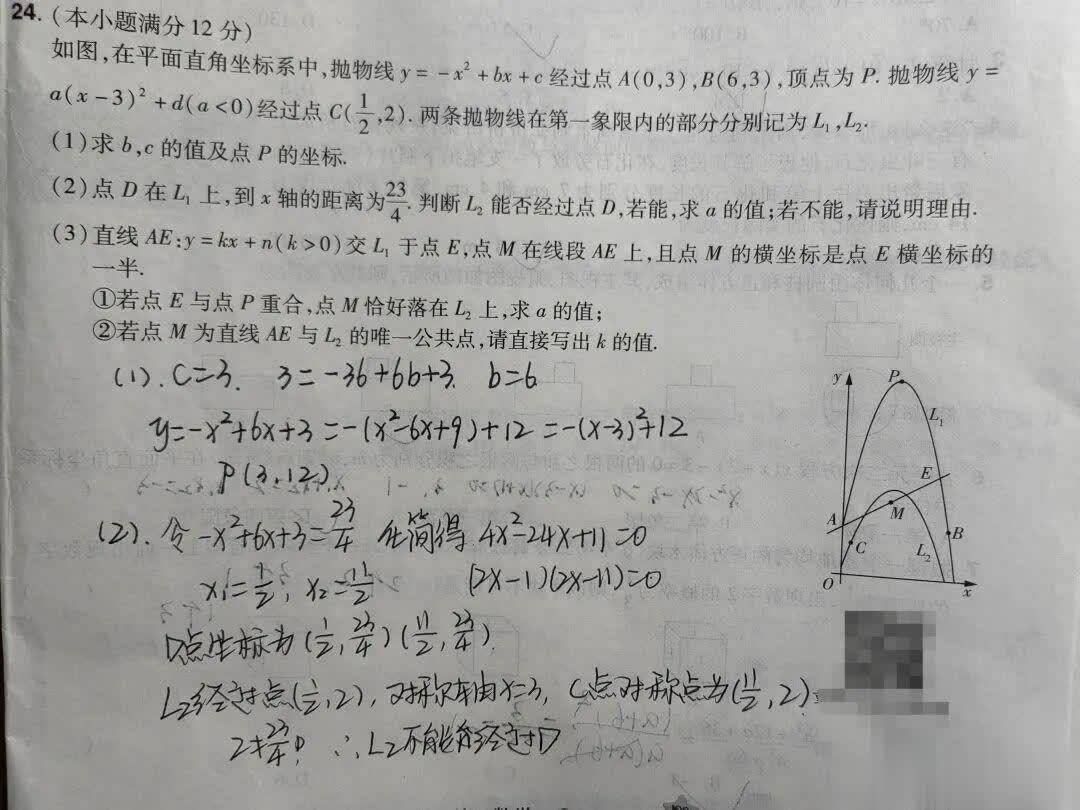 24. (本小题满分12分)
如图,在平面直角坐标系中,抛物线 y = -x² + bx + c 经过点 A(0,3),B(6,3),顶点为 P. 抛物线 y =
a(x-3)² + d(a<0)经过点 C(1/2,2). 两条抛物线在第一象限内的部分分别记为 L₁,L₂.
(1)求 b,c 的值及点 P 的坐标.
(2)点 D 在 L₁ 上,到 x 轴的距离为23/4. 判断 L₂ 能否经过点 D,若能,求 a 的值;若不能,请说明理由.
(3)直线 AE:y = kx + n(k>0)交 L₁ 于点 E,点 M 在线段 AE 上,且点 M 的横坐标是点 E 横坐标的
一半.
①若点 E 与点 P 重合,点 M 恰好落在 L₂ 上,求 a 的值;
②若点 M 为直线 AE 与 L₂ 的唯一公共点,请直接写出 k 的值.
(1). C=3. 3=-36+6b+3. b=6
y=-x²+6x+3=-(x²-6x+9)+12=-(x-3)²+12
P(3,12).
(2). 令 -x²+6x+3=23/4 化简得 4x²-24x+11=0
x₁=1/2, x₂=11/2 (2x-1)(2x-11)=0
D点坐标为(1/2,23/4)(11/2,23/4).
L₂经过点(1/2,2), 对称轴x=3, C点对称点为(11/2,2).
2≠23/4 ∴L₂不能经过D
y
P
L₁
E
A
M
B
C
L₂
O
x